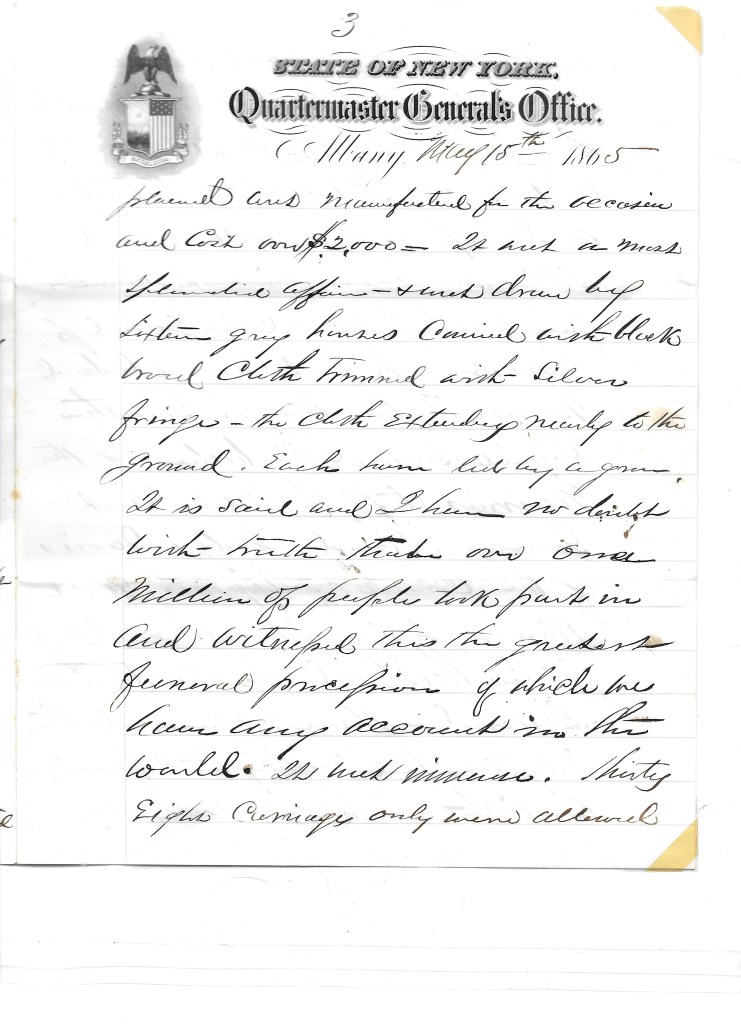 3
STATE OF NEW YORK,
Quartermaster General's Office.
Albany, May 15th 1865
planned and manufactured for the occasion
and Cost over $2,000 = It was a most
splendid affair — & was drawn by
sixteen grey horses Covered with black
broad Cloth Trimmed with Silver
fringe — the Cloth Extending nearly to the
ground. Each horse led by a groom.
It is said and I have no doubt
with truth that over one
Million of people took part in
and witnessed this the greatest
funeral procession of which we
have any account in the
world. It was immense. Thirty
Eight Carriages only were allowed